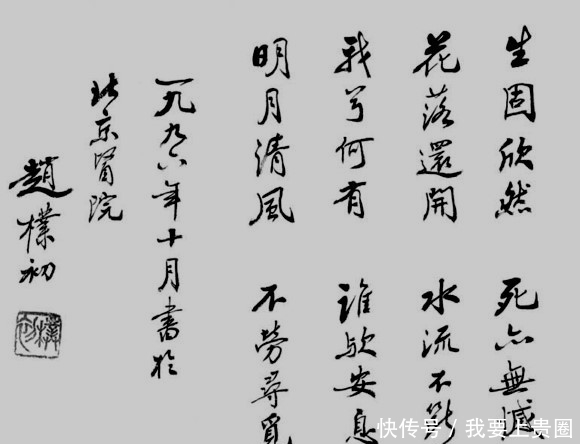 生固欣然 死亦無憾
花落還開 水流不斷
我兮何有 誰歟安息
明月清風 不勞尋覓
一九九六年十月書於
北京醫院
趙樸初
樸初
快传号 / 我要上贵圈